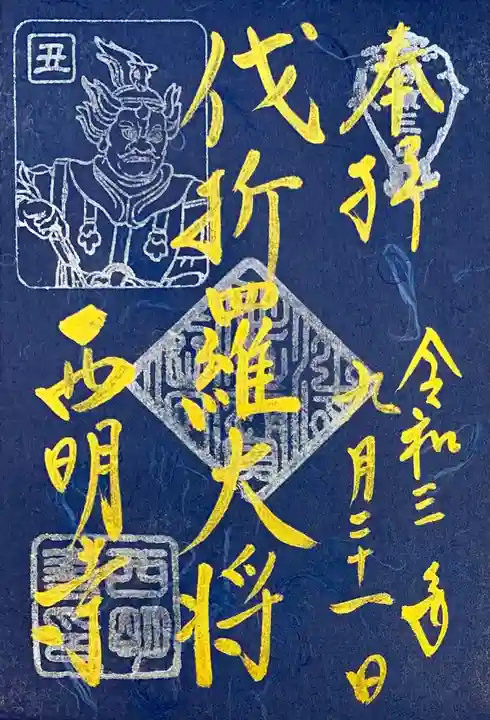 奉拝
令和三年
九月二十一日
伐折羅大将
丑
西明寺